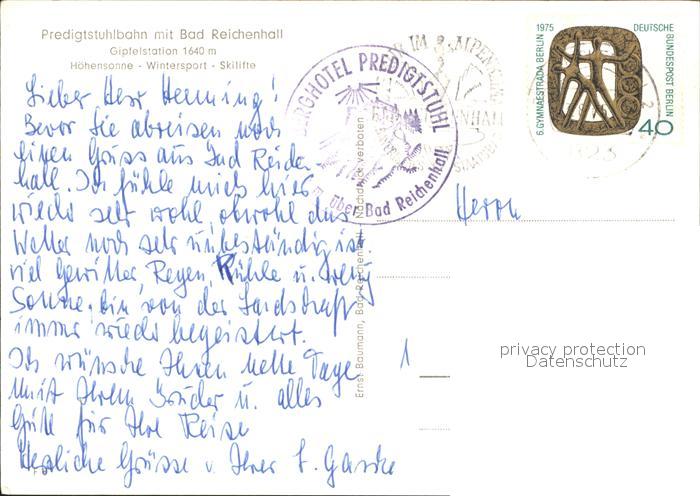 Predigtstuhlbahn mit Bad Reichenhall
Gipfelstation 1640 m
Höhensonne - Wintersport - Skilifte
Lieber Herr Henning!
Bevor Sie abreisen noch
einen Gruss aus Bad Reichen-
hall. Ich fühle mich hier
wieder sehr wohl, obwohl das
Wetter noch sehr unbeständig ist
viel Gewitter, Regen, Kühle u. wenig
Sonne, bin von der Landschaft
immer wieder begeistert.
Ich wünsche Ihnen nette Tage
mit Ihrem Bruder u. alles
Gute für Ihre Reise
Herzliche Grüsse v. Ihrer
BERGHOTEL PREDIGTSTUHL
über Bad Reichenhall
Ernst Baumann, Bad Reichenhall - Nachdruck verboten
1975
6. GYMNAESTRADA BERLIN
DEUTSCHE BUNDESPOST BERLIN
40
Herrn
1
privacy protection
Datenschutz